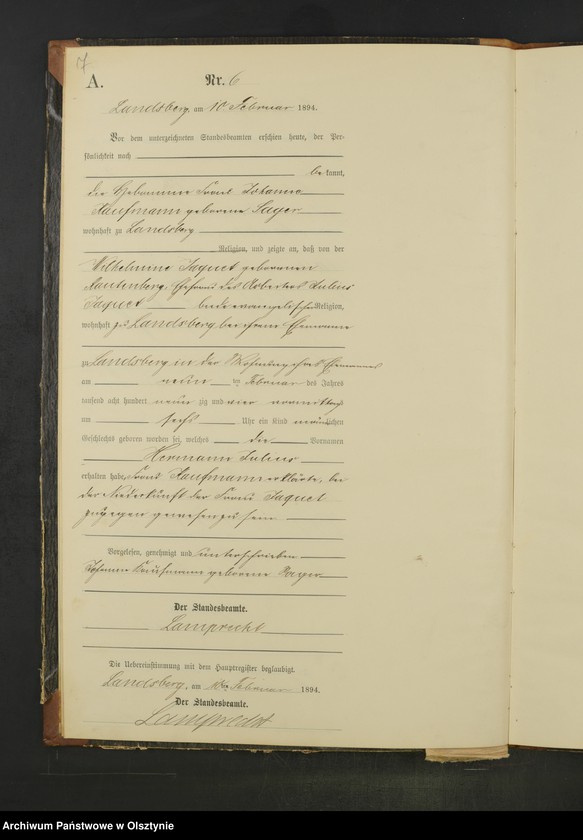 7
A.
Nr. 6
Landsberg, am 10 Februar 1894.
Vor dem unterzeichneten Standesbeamten erschien heute, der Per-
sönlichkeit nach
be kannt,
die Hebamme Frau Johanna
Kaufmann geborene Sager
wohnhaft zu Landsberg
Religion, und zeigte an, daß von der
Wilhelmine Jaquet geborenen
Rautenberg, Ehefrau des Arbeiters Julius
Jaquet beide evangelischer Religion,
wohnhaft zu Landsberg bei ihrem Ehemanne
zu Landsberg in der Wohnung ihres Ehemannes
am neun ten Februar des Jahres
tausend acht hundert neun zig und vier vormittags
um sechs Uhr ein Kind männlichen
Geschlechts geboren worden sei, welches die Vornamen
Hermann Julius
erhalten habe. Frau Kaufmann erklärte, bei
der Niederkunft der Frau Jaquet
zugegen gewesen zu sein
Vorgelesen, genehmigt und unterschrieben
Johanna Kaufmann geborene Sager
Der Standesbeamte.
Lamprecht
Die Uebereinstimmung mit dem Hauptregister beglaubigt.
Landsberg, am 10 Februar 1894.
Der Standesbeamte.
Lamprecht
Archiwum Państwowe w Olsztynie